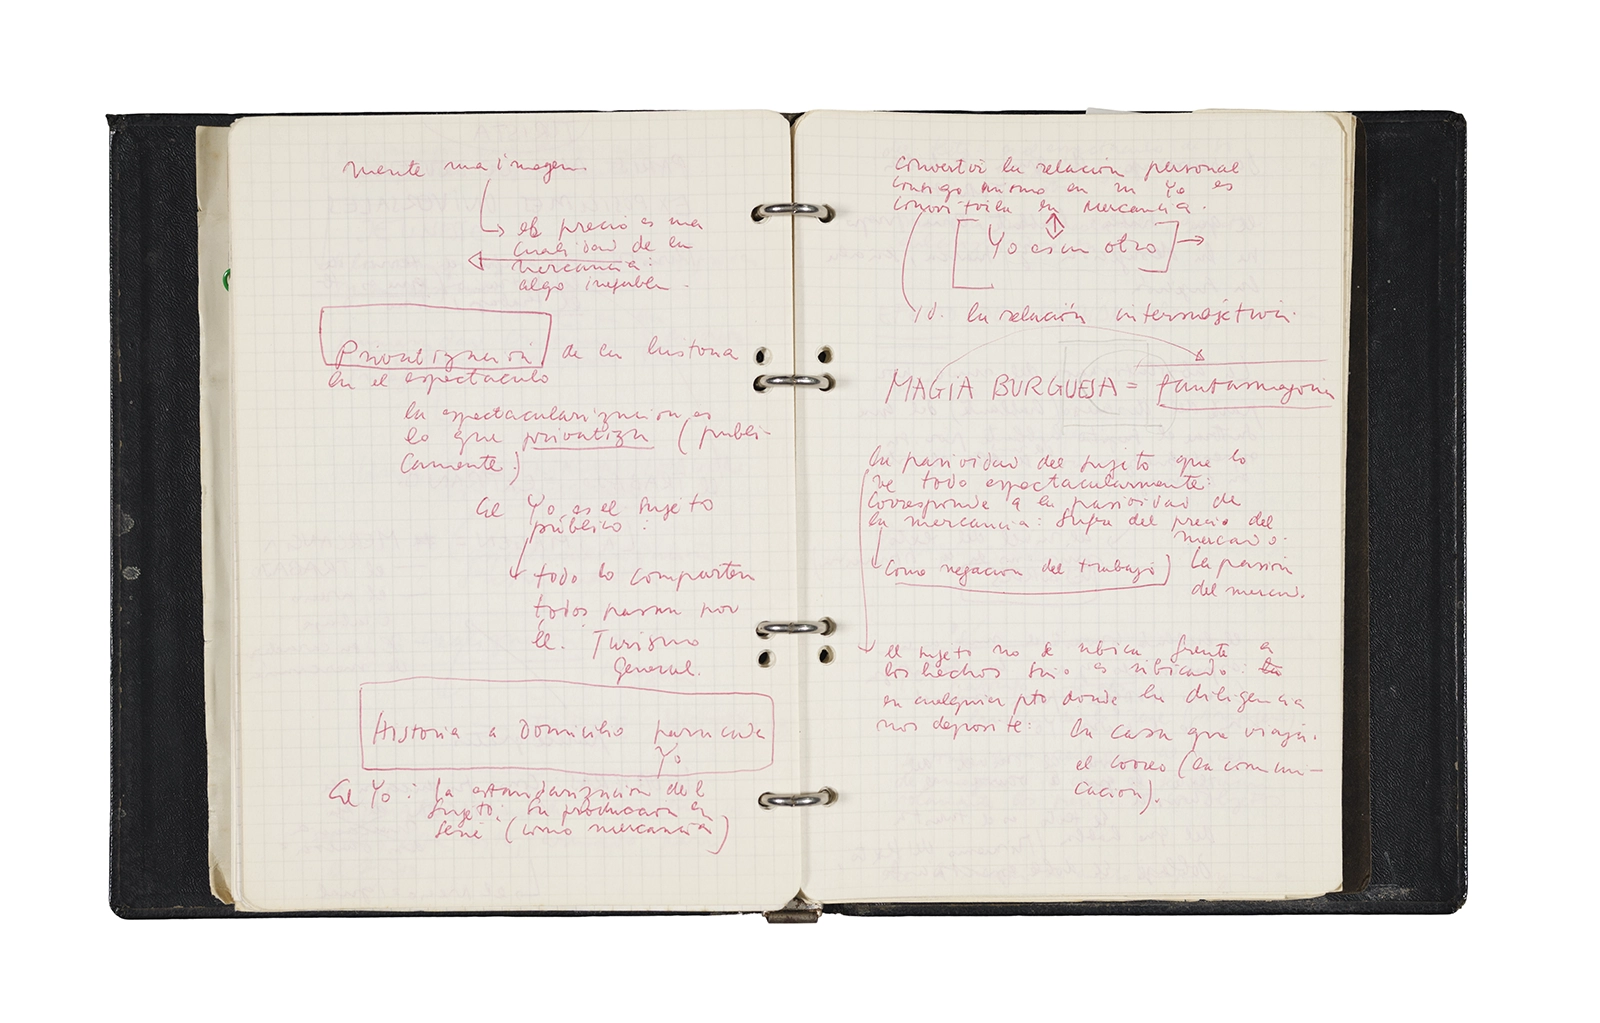 mente una imagen
el precio es una
cualidad de la
mercancía:
algo
Privatización de la historia
en el espectáculo
la espectacularización es
lo que privatiza (publi-
camente)
El Yo es el sujeto
público:
todo lo comparten
todos pasan por
él. Turismo
General.
Historia a Domicilio para cada
Yo
El Yo: la estandarización del
Sujeto: su producción en
serie (como mercancía)
convertir la relación personal
consigo mismo en un Yo es
convertirla en mercancía.
[Yo es un otro]
id. la relación intersubjetiva.
MAGIA BURGUESA = fantasmagoría
la pasividad del sujeto que lo
ve todo espectacularmente:
Corresponde a la pasividad de
la mercancía: Sufra del precio del
mercado.
(como negación del trabajo)
la pasión
del mercad.
el sujeto no se ubica frente a
los hechos sino es ubicado:
en cualquier pto donde la diligencia
nos deposite:
la casa que viaja.
el correo (la comuni-
cación).